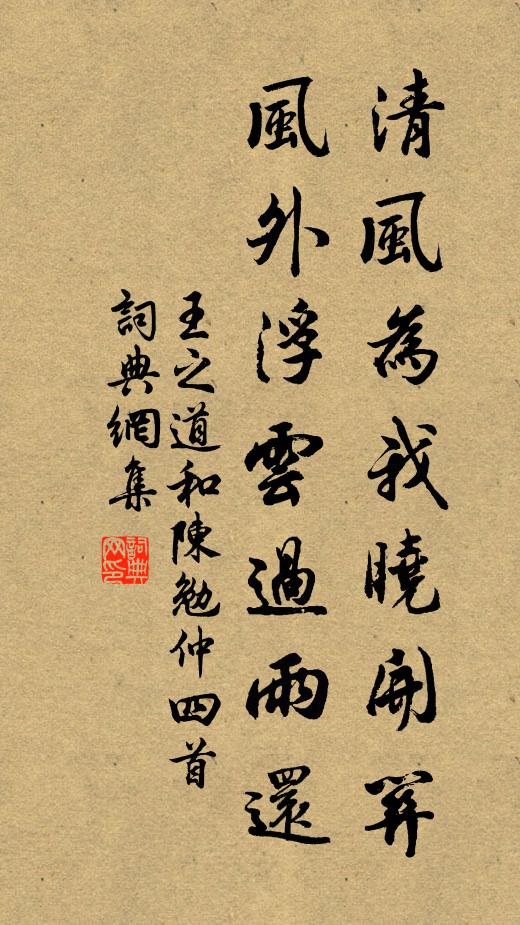 清風為我曉開關
風外浮雲過雨還
王之道和陳勉仲四首
詞典網集
詞典
网印